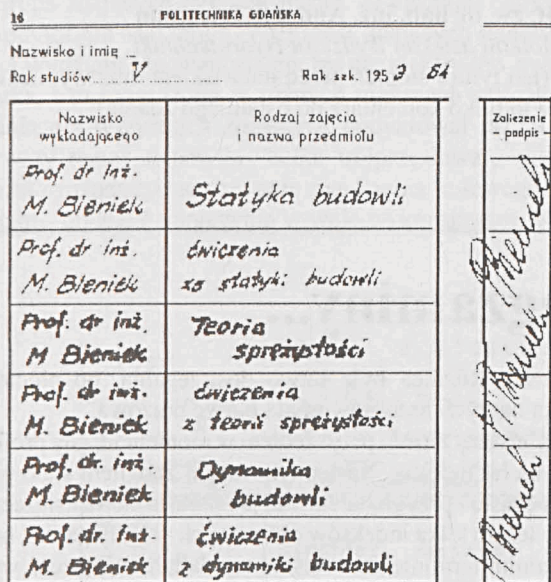 16 POLITECHNIKA GDAŃSKA
Nazwisko i imię
Rok studiów V Rok szk. 1953 54
Nazwisko wykładającego
Rodzaj zajęcia i nazwa przedmiotu
Zaliczenie - podpis -
Prof. dr inż.
M. Bieniek
Statyka budowli
Prof. dr inż.
M. Bieniek
ćwiczenia
ze statyki budowli
Prof. dr inż
M. Bieniek
Teoria
sprężystości
Prof. dr inż.
M. Bieniek
ćwiczenia
z teorii sprężystości
Prof. dr. inż.
M. Bieniek
Dynamika
budowli
Prof. dr. inż
M. Bieniek
ćwiczenia
z dynamiki budowli
M Bieniek
M Bieniek
M Bieniek